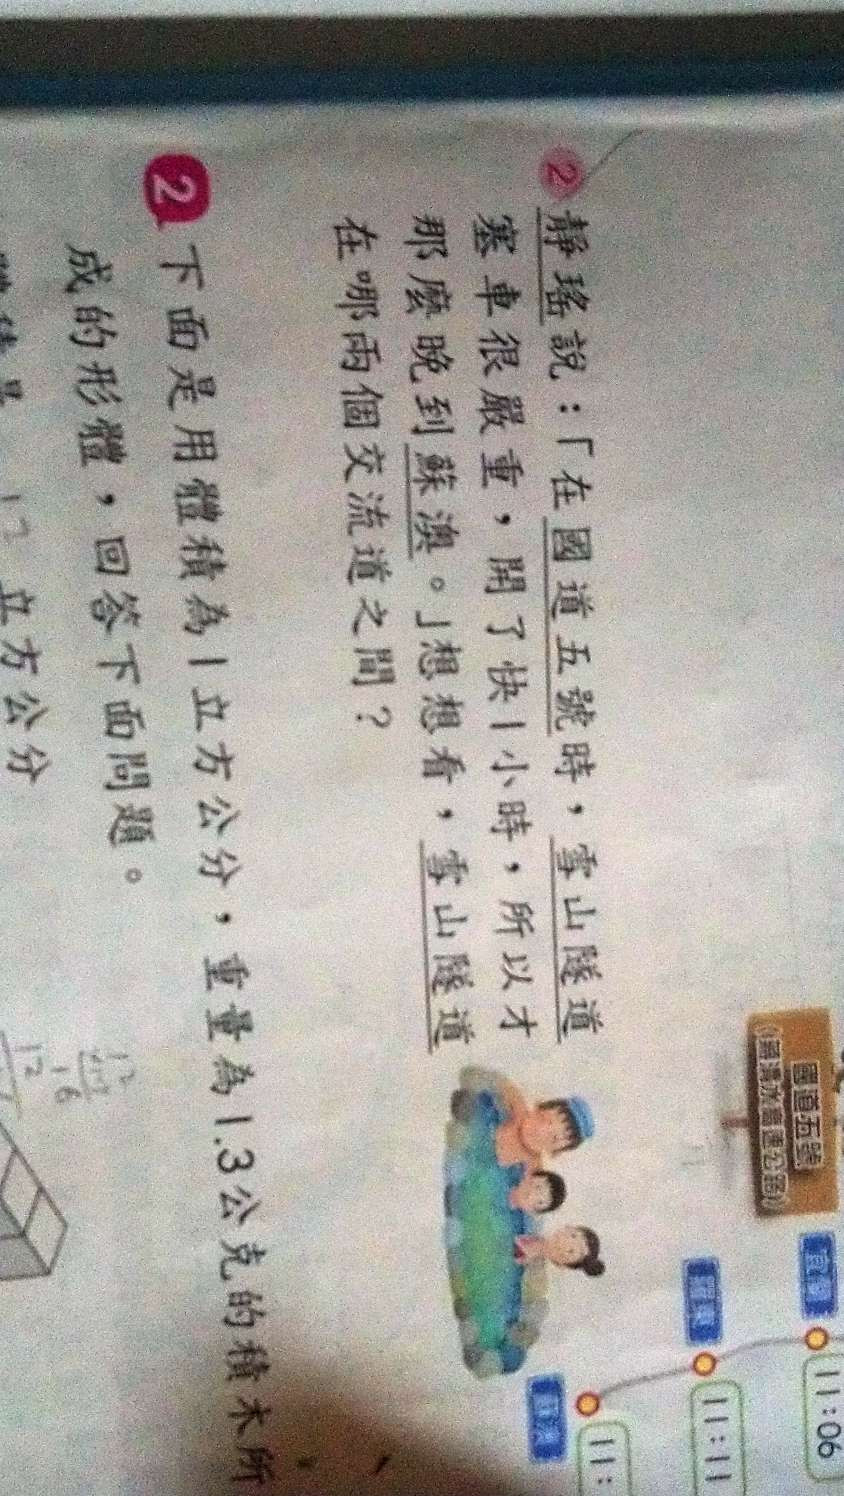 國道五號
(蔣渭水高速公路)
宜蘭
11:06
羅東
11:11
蘇澳
11:
② 靜瑤說：「在國道五號時，雪山隧道
塞車很嚴重，開了快1小時，所以才
那麼晚到蘇澳。」想想看，雪山隧道
在哪兩個交流道之間？
2 下面是用體積為1立方公分，重量為1.3公克的積木所
成的形體，回答下面問題。
立方公分